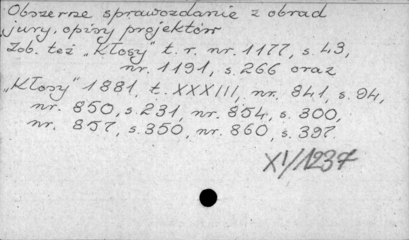 Obszerne sprawozdanie z obrad
jury, opisy projektów
Zob. też „Kłosy" t. r. nr. 1177, s. 43,
nr. 1191, s. 266 oraz
„Kłosy" 1881, t. XXXIII, nr. 841, s. 94,
nr. 850, s. 231, nr. 854, s. 300,
nr. 857, s. 350, nr. 860, s. 397.
XI/1237